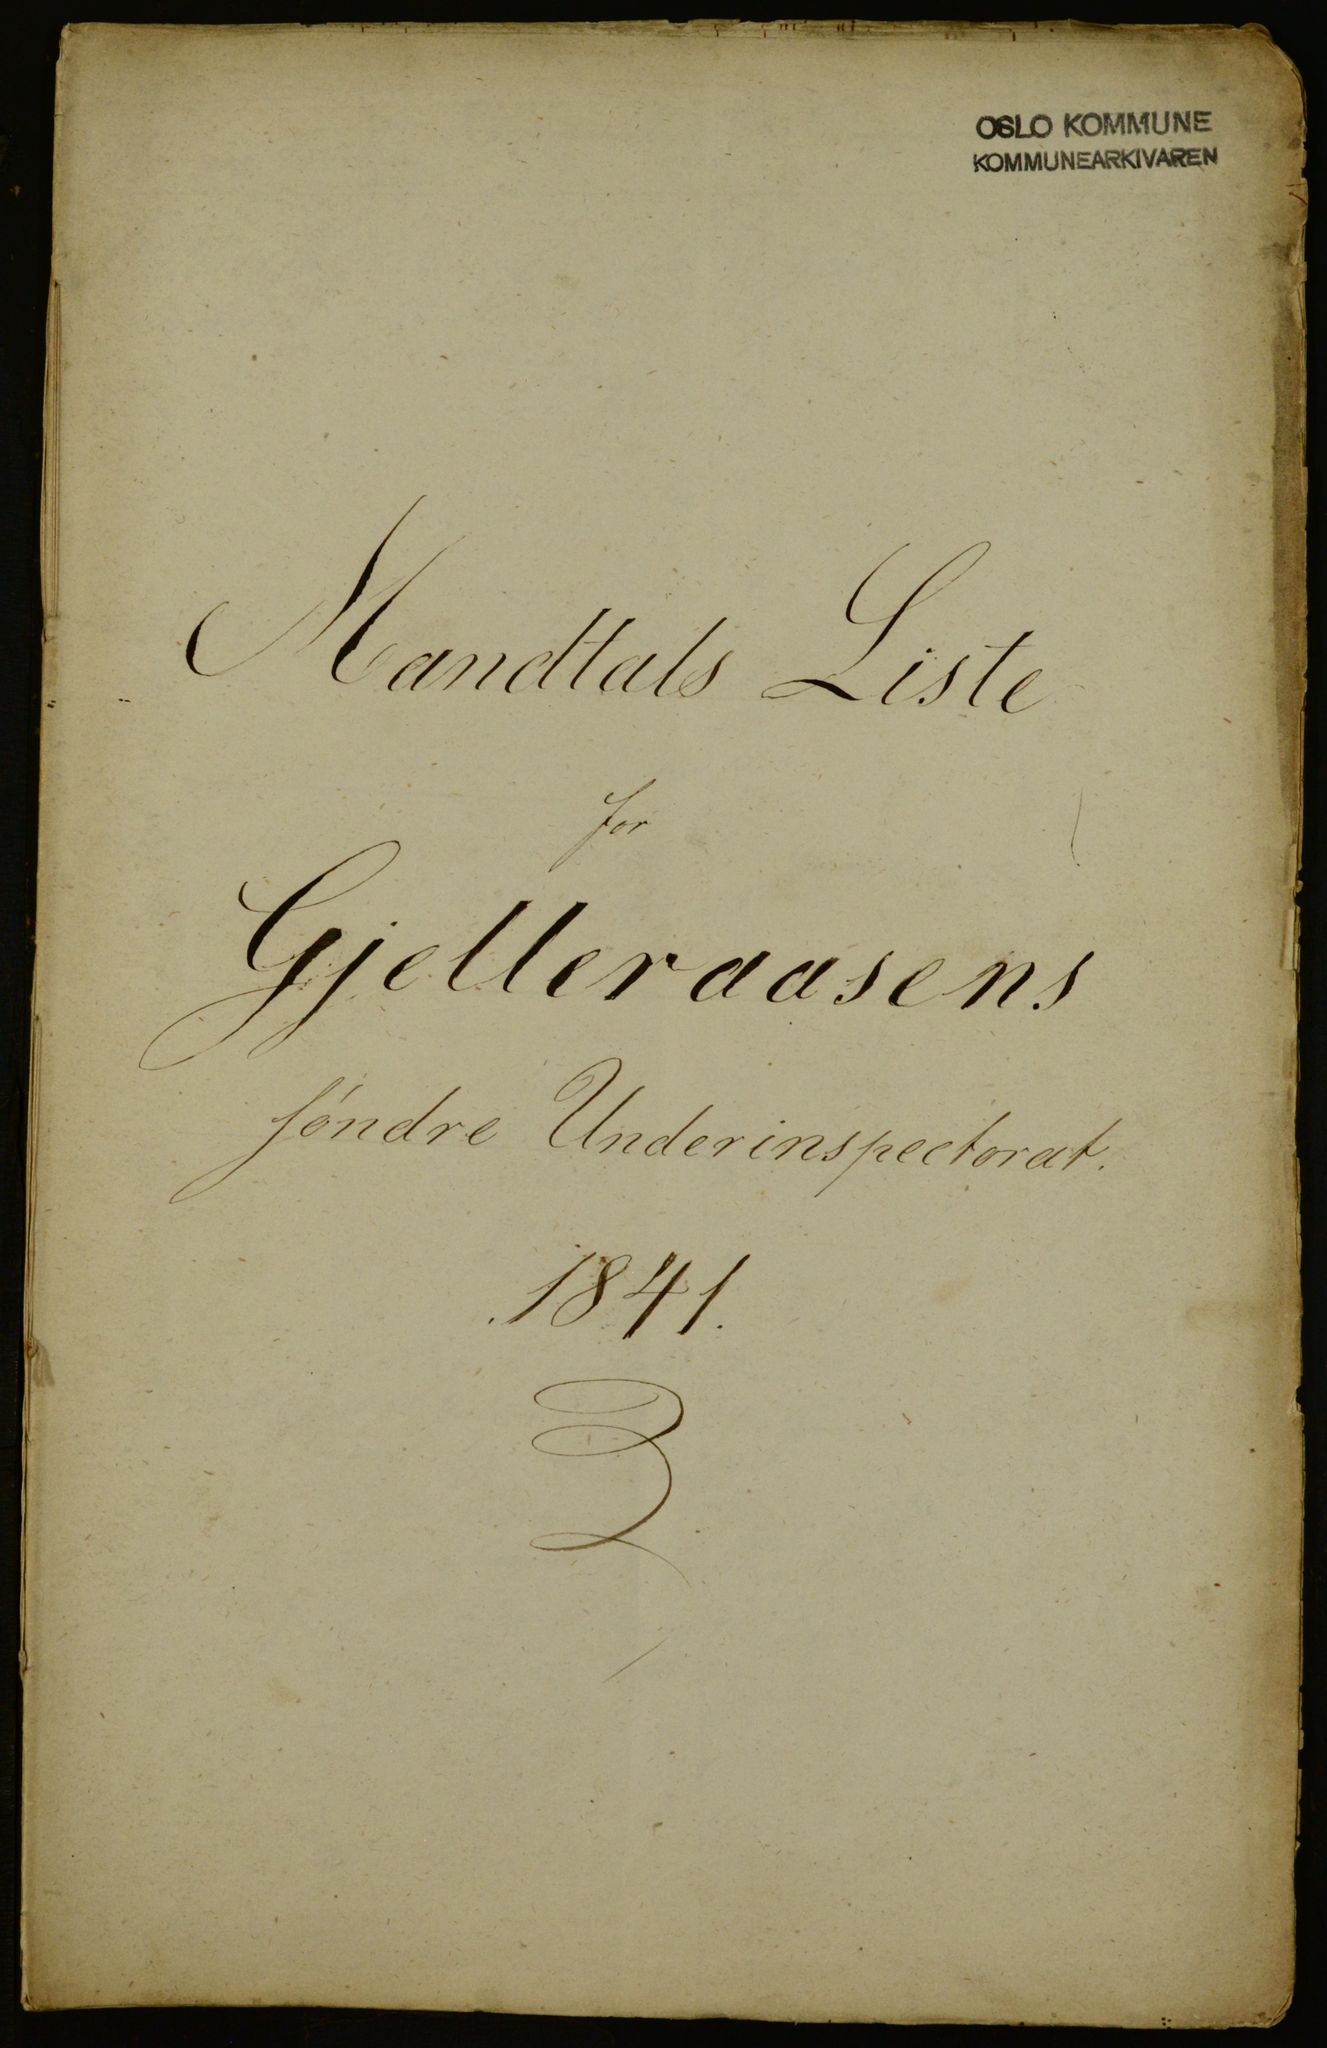 OSLO KOMMUNE
KOMMUNEARKIVAREN
Mandtals Liste
for
Gjelleraasens
söndre Underinspectorat.
1841.